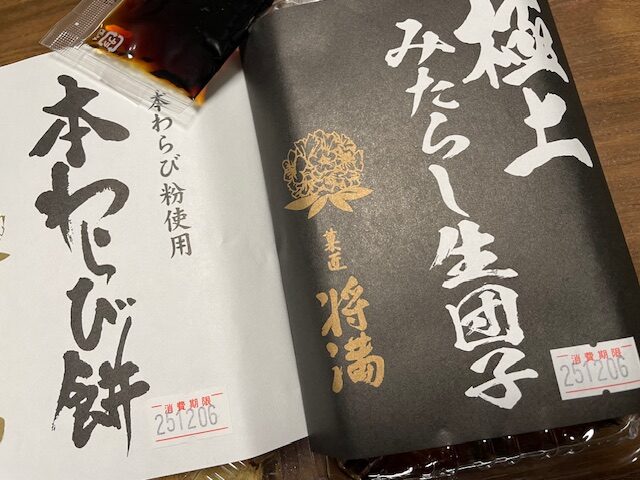 極上
みたらし生団子
菓匠
将満
消費期限
251206
本わらび粉使用
本わらび餅
消費期限
251206